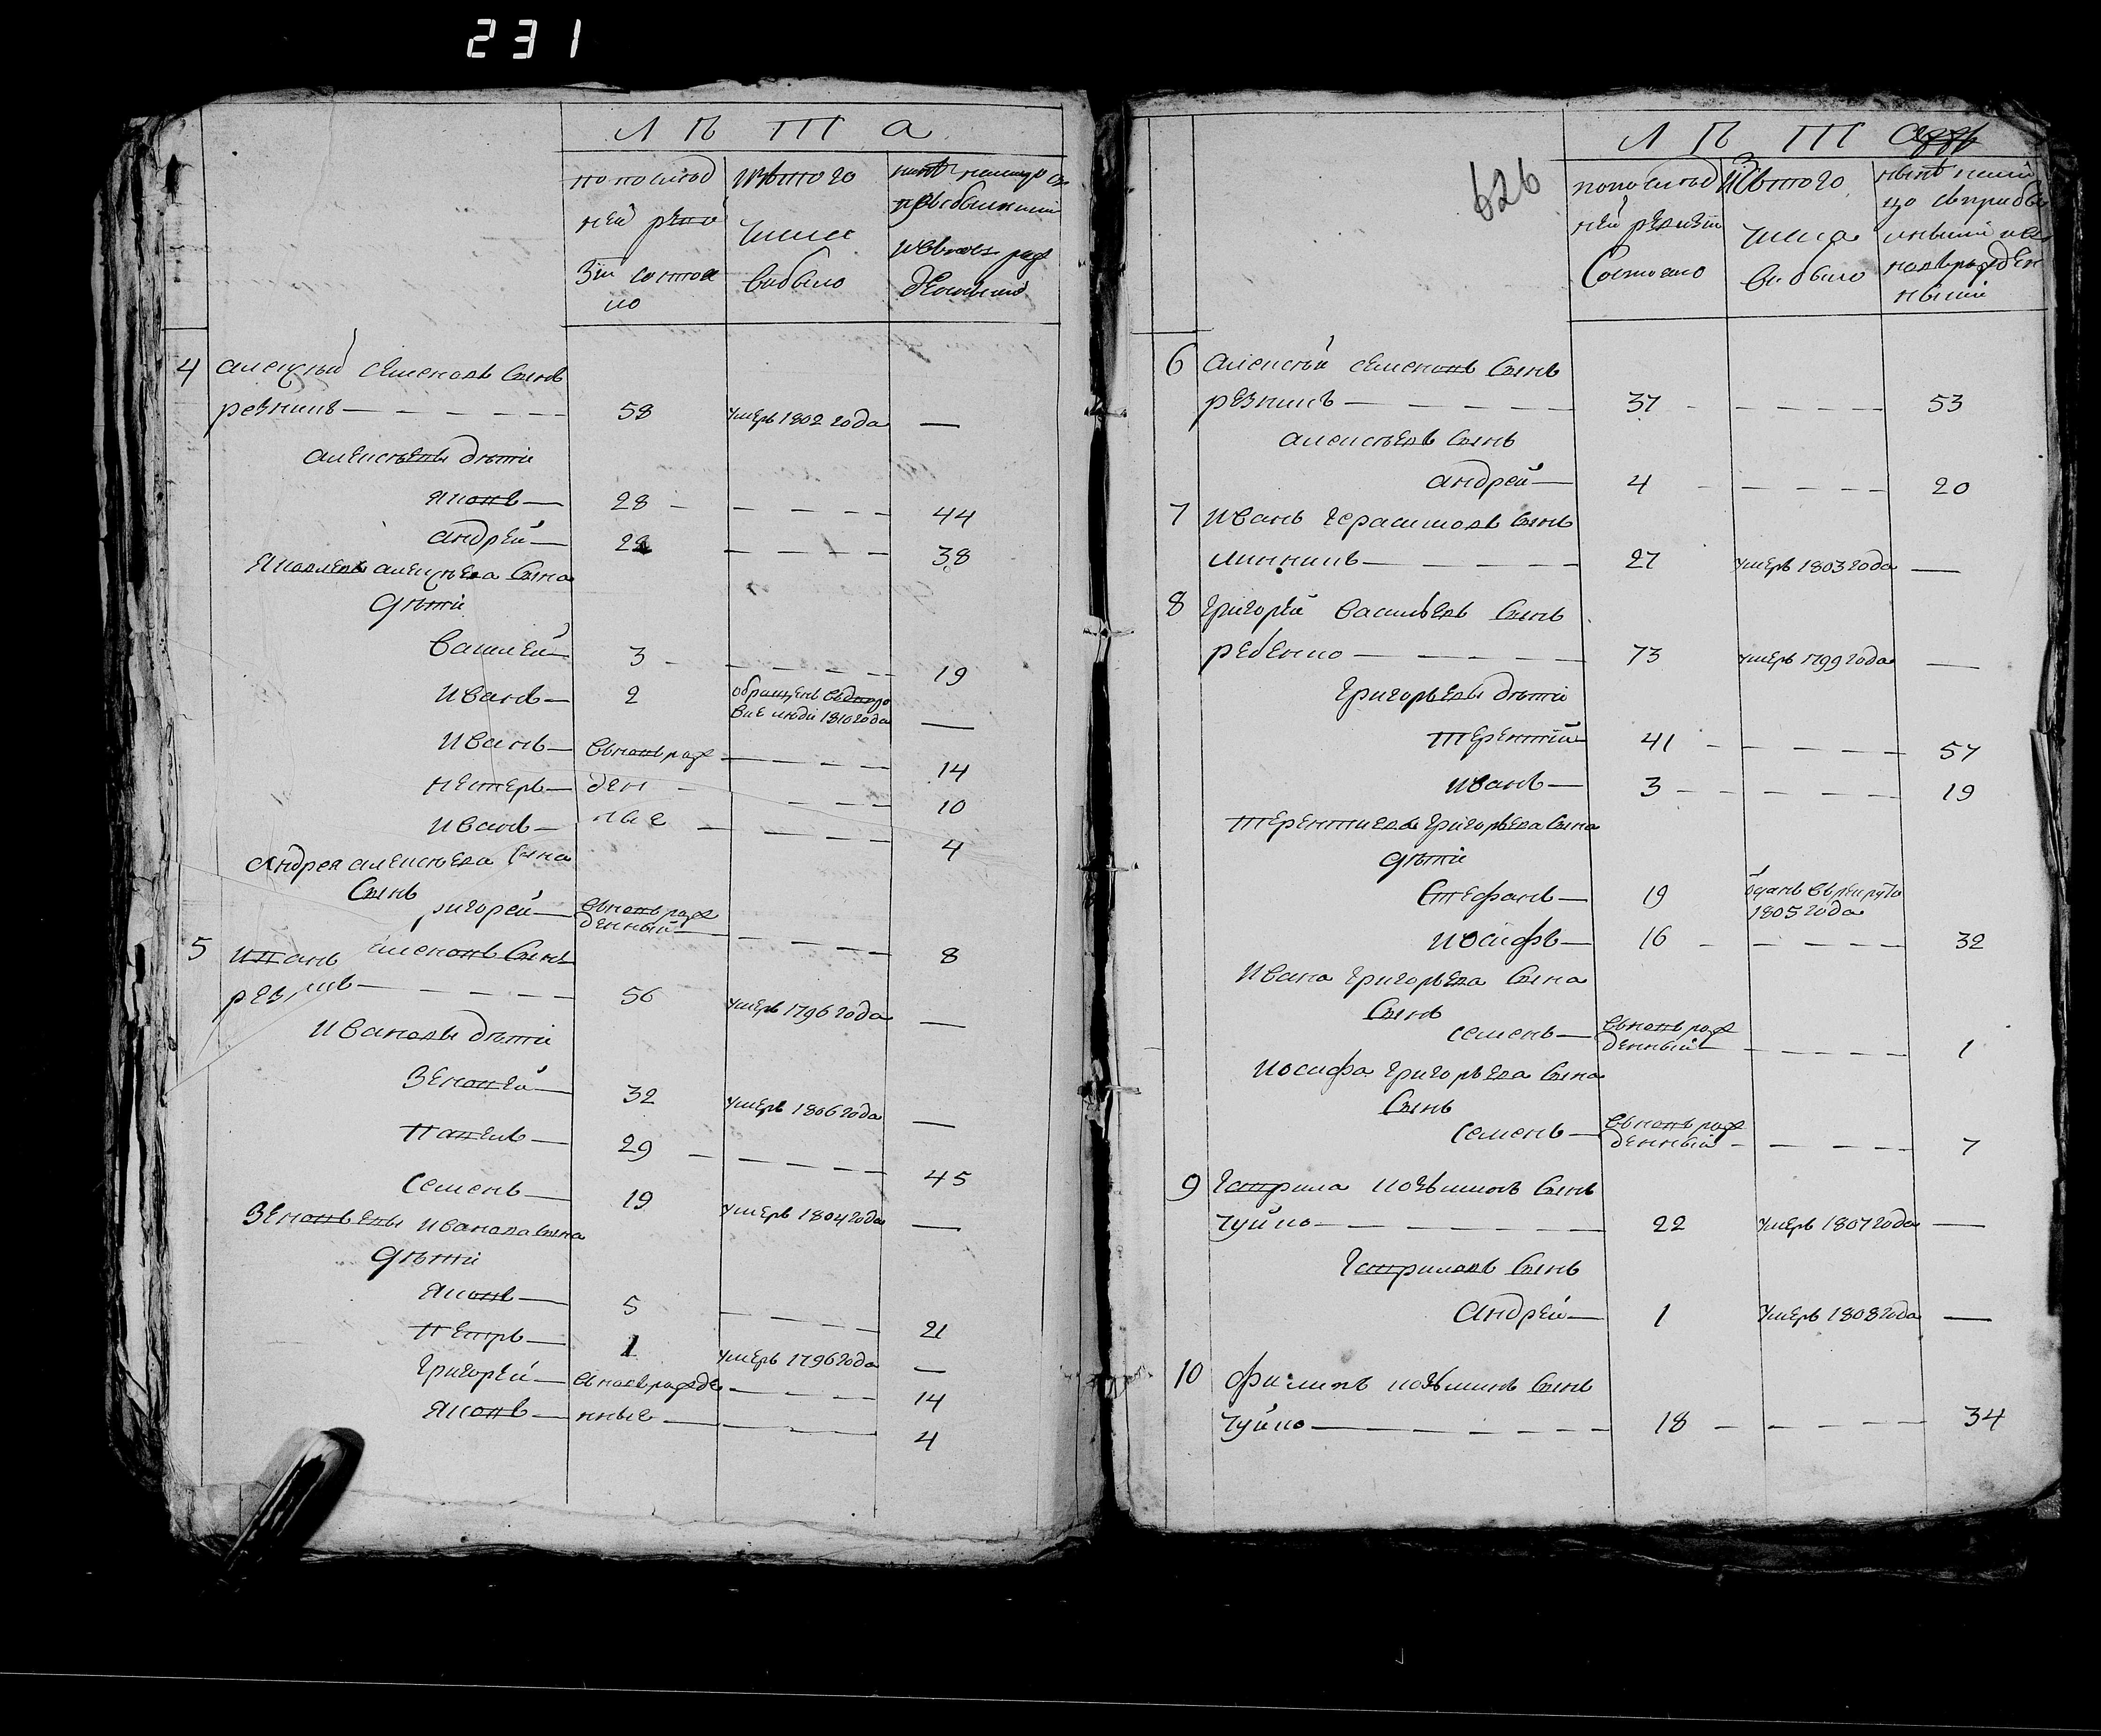 231
Л Ѣ Т А
по послѣд
ней реви
зіи состоя
ло
Изъ того
числа
выбыло
нынѣ налицо съ
прибылыми
и вновь рож
денными
4 Алексѣй Семеновъ сынъ
резникъ — 58 умеръ 1802 года —
Алексѣевы дѣти
Яковъ — 28 — 44
Андрей — 22 — 38
Яковлевы Алексѣева сына
дѣти
Василей — 3 — 19
Иванъ — 2 обращенъ въ дворо
вые люди 1810 года —
Иванъ — вновь рож — 14
Нестеръ — ден — 10
Иванъ — ные — 4
Андрея Алексѣева сына
сынъ
Григорей — вновь рож
денный — 8
5 Иванъ Семеновъ сынъ
резникъ — 56 умеръ 1796 года —
Ивановы дѣти
Зеновей — 32 умеръ 1806 года —
Павелъ — 29 — 45
Семенъ — 19 умеръ 1804 года —
Зеновьевы Иванова сына
дѣти
Яковъ — 5 — 21
Петръ — 1 умеръ 1796 года —
Григорей — вновь рожде — 14
Яковъ — нные — 4
626
Л Ѣ Т А
по послѣд
ней ревизіи
состояло
Изъ того
числа
выбыло
нынѣ нали
цо съ прибы
лыми и в
новь рожден
ными
6 Алексѣй Семеновъ сынъ
резникъ — 37 — 53
Алексѣевъ сынъ
Андрей — 4 — 20
7 Иванъ Герасимовъ сынъ
линникъ — 27 умеръ 1803 года —
8 Григорей Васильевъ сынъ
ребенко — 73 умеръ 1799 года —
Григорьевы дѣти
Терентий — 41 — 57
Иванъ — 3 — 19
Терентиевы Григорьева сына
дѣти
Стефанъ — 19 отданъ въ рекруты
1805 года
Иосифъ — 16 — 32
Ивана Григорьева сына
сынъ
Семенъ — вновь рож
денный — 1
Иосифа Григорьева сына
сынъ
Семенъ — вновь рож
денный — 7
9 Гаврила Козьминъ сынъ
чуйко — 22 умеръ 1807 года —
Гавриловъ сынъ
Андрей — 1 умеръ 1808 года —
10 Филипъ Козьминъ сынъ
чуйко — 18 — 34